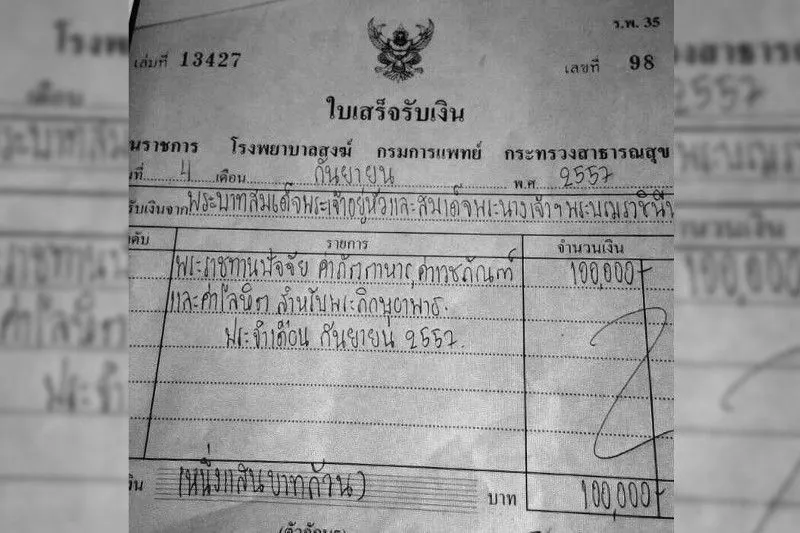 ร.พ. 35
เล่มที่ 13427 เลขที่ 98
ใบเสร็จรับเงิน
ราชการ โรงพยาบาลสงฆ์ กรมการแพทย์ กระทรวงสาธารณสุข
ที่ 4 เดือน กันยายน พ.ศ 2557
รับเงินจาก พระบาทสมเด็จพระเจ้าอยู่หัวและสมเด็จพระนางเจ้าฯพระบรมราชินีน
รายการ จำนวนเงิน
พระราชทานปัจจัย ค่าภัตตาหาร,ค่าเวชภัณฑ์ 100,000-
และค่าโลหิต สำหรับพระภิกษุอาพาธ
ประจำเดือน กันยายน 2557
(หนึ่งแสนบาทถ้วน) บาท 100,000-
(ตัวอักษร)